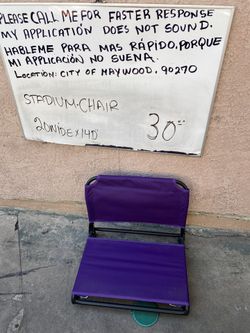 PLEASE CALL ME FOR FASTER RESPONSE
MY APPLICATION DOES NOT SOUND.
HABLEME PARA MAS RÁPIDO, PORQUE
MI APPLICACIÓN NO SUENA.
LOCATION: CITY OF MAYWOOD, 90270
STADIUM-CHAIR
30